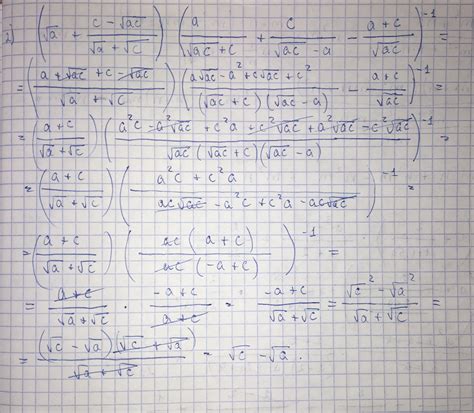 2) (√a + (c - √ac)/(√a + √c)) (a/(√ac + c) + c/(√ac - a) - (a + c)/√ac)^-1 =
= ((a + √ac + c - √ac)/(√a + √c)) ((a√ac - a² + c√ac + c²)/((√ac + c)(√ac - a)) - (a + c)/√ac)^-1 =
= ((a + c)/(√a + √c)) ((a²c - a²√ac + c²a + c²√ac + a²√ac - c²√ac)/(√ac (√ac + c)(√ac - a)))^-1 =
= ((a + c)/(√a + √c)) ((a²c + c²a)/(ac√ac - a²c + c²a - ac√ac))^-1 =
= ((a + c)/(√a + √c)) (ac(a + c)/(ac(-a + c)))^-1 =
= (a + c)/(√a + √c) · (-a + c)/(a + c) = (-a + c)/(√a + √c) = (√c² - √a²)/(√a + √c) =
= (√c - √a)(√c + √a)/(√a + √c) = √c - √a.